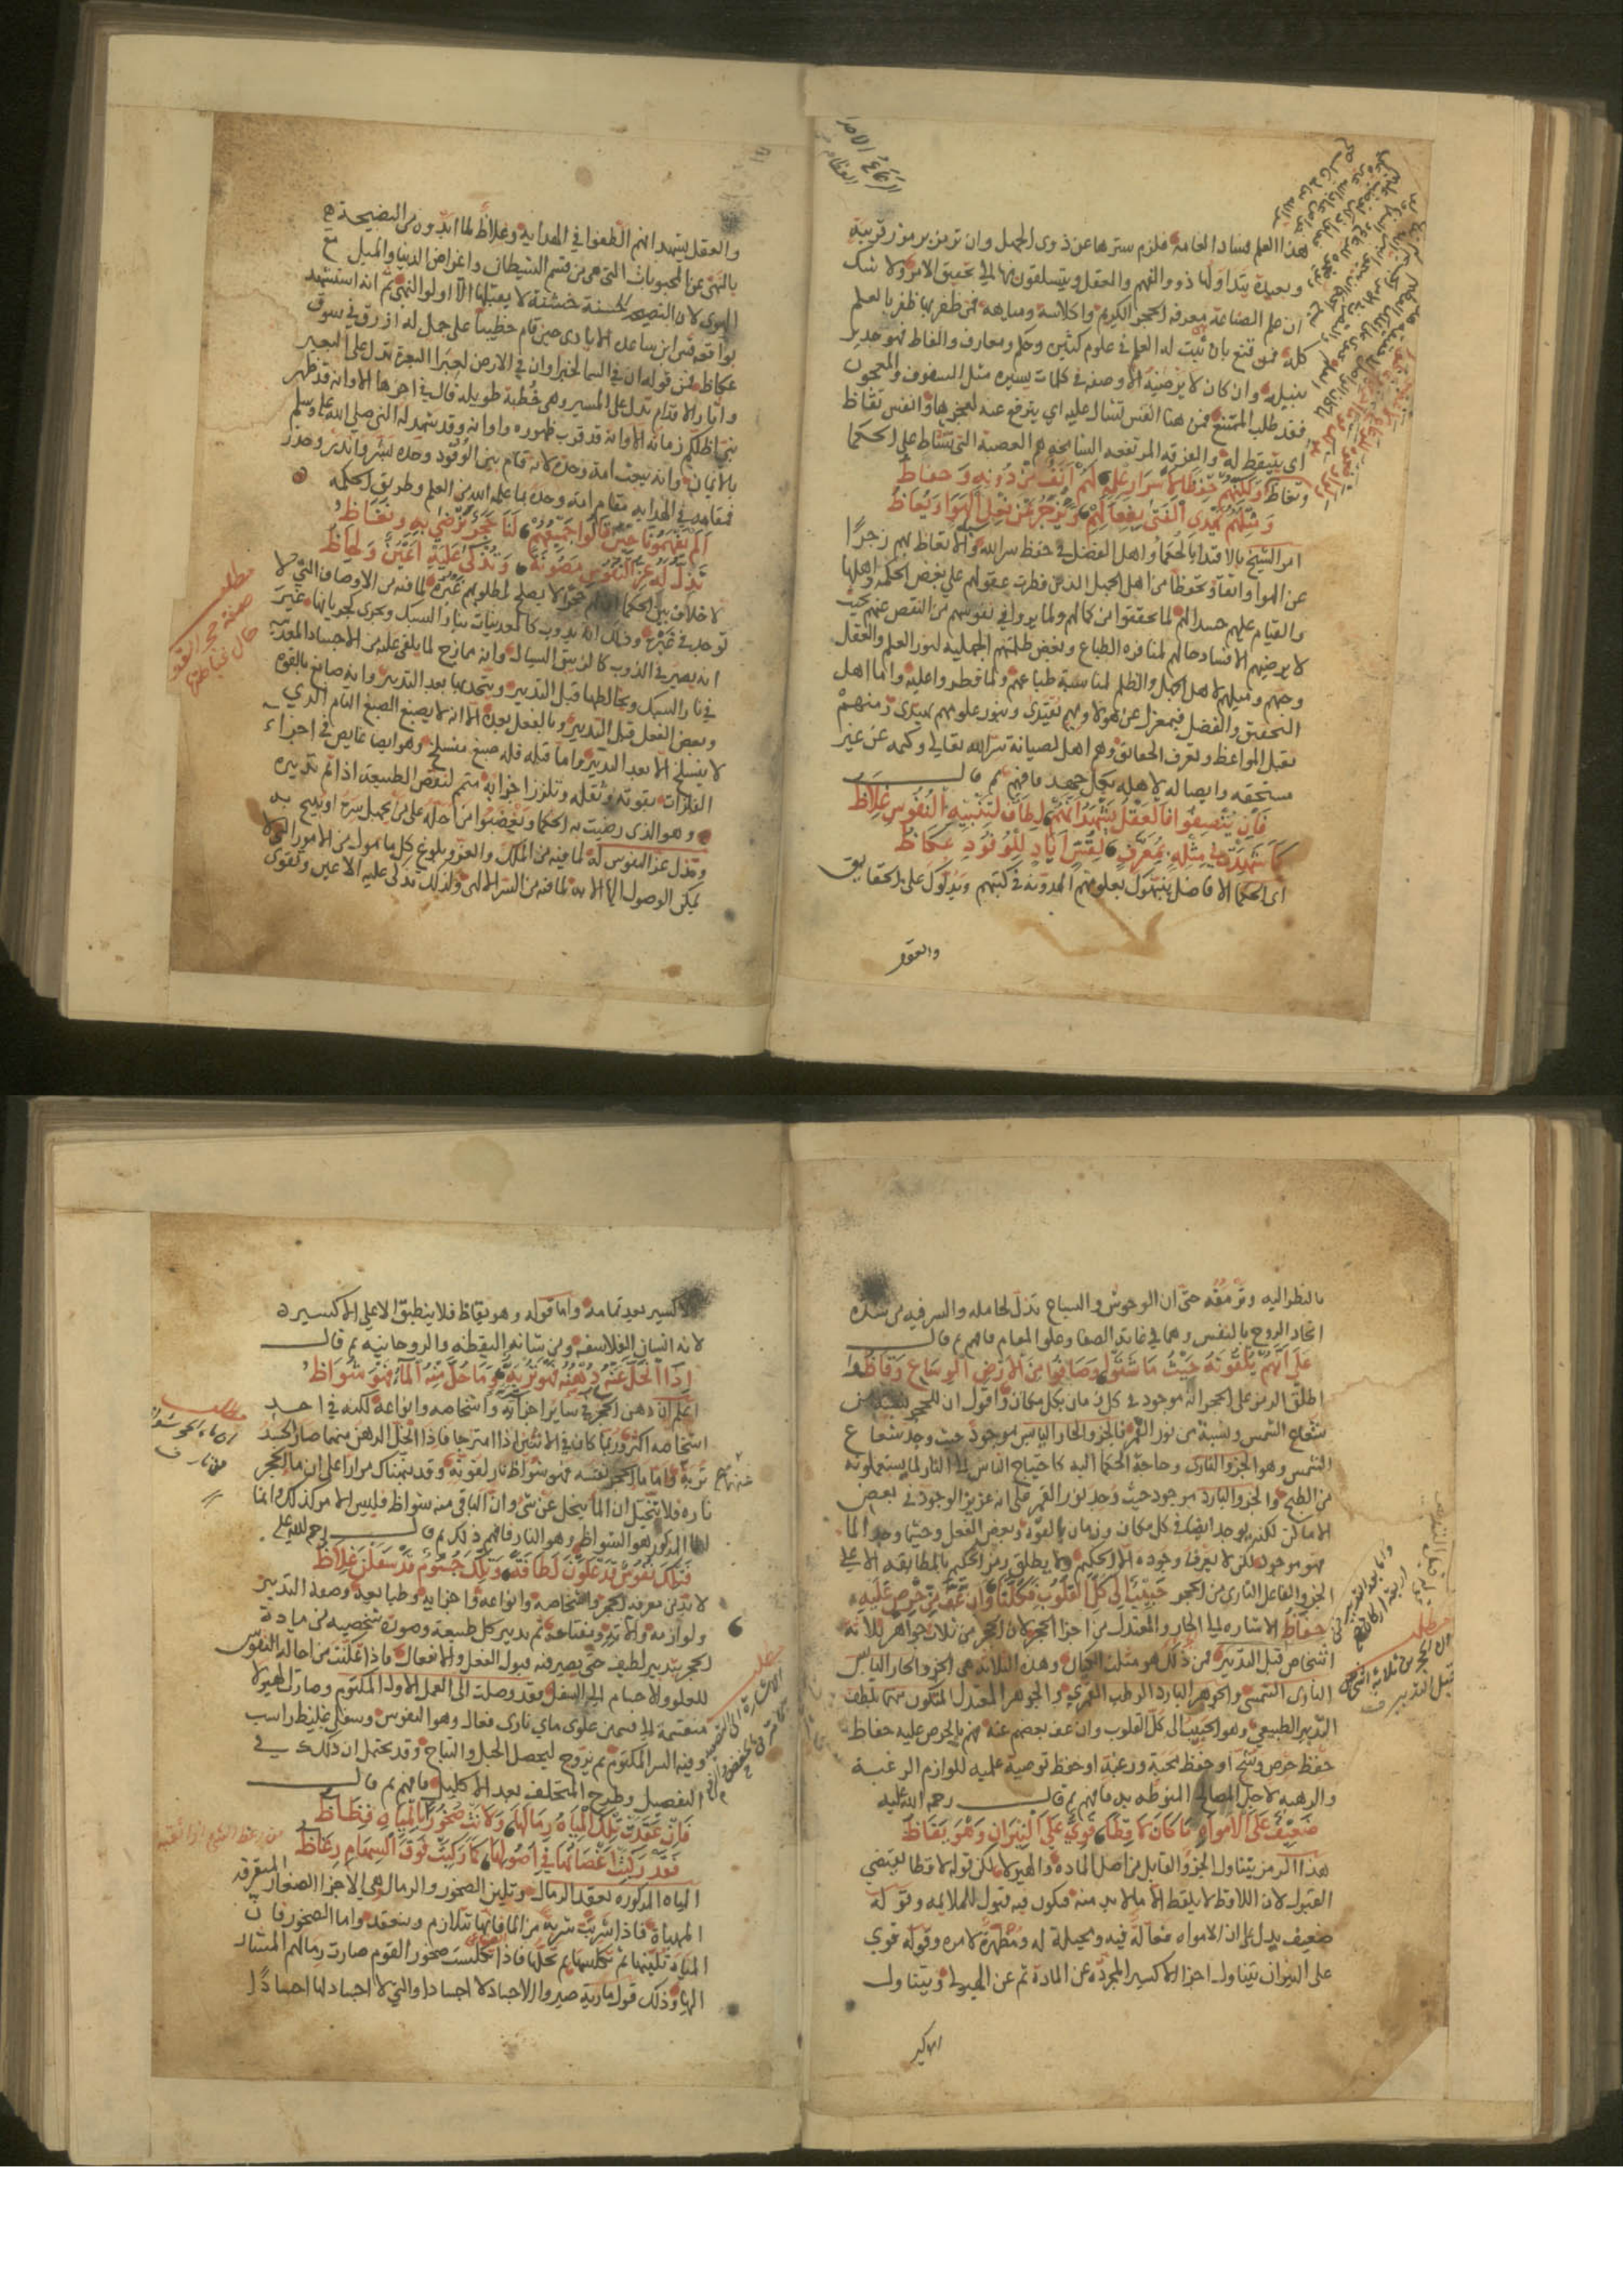 هذا العلم فساد العامة فلزم سترها عن ذوى الجهل وان ترمز برموز قريبة
وبعيدة يتداولها ذوو الفهم والعقل ويتسلقون بها الى تحقيق الامر ولا شك
ان علم الصناعة معرفة الحجر الكريم واكلاسه ومياهه فمن ظفر بها ظفر بالعلم
كله فمن قنع بان يثبت له العلم في علوم كثيرة وحكم ومعارف والفاظ فهو جدير
بنيله وان كان لا يرضيه الا وصفه في كلمات يسيرة مثل السفوف والمعجون
فقد طلب الممتنع فمن هنا النفس تشال عليه اي يترفع عنه لعجزها وانفس تقاظ
اى يتيقظ له والفرقة المرتفعة الشامخة هم العصبة التى تستاط على الحكما
وتغاظ ولكنهم حفاظ اسرار علمه لهم انف من دونه وحفاظ
ومثلهم يهدي الفتى بفعالهم ويزجر عن فعل الهوا ويعاظ
امر الشيخ بالاقتدا بالحكما واهل الفضل في حفظ سر الله والاتعاظ بهم زجرًا
عن الهوا واتقا وتحفظا من اهل الجهل الذين فطرت عقولهم على بغض الحكمة واهلها
والقيام عليهم حسدا لهم لما تحققوا من كمالهم ولما يروا في نفوسهم من النقص عنهم بحيث
لا يرضيهم الا فساد حالهم لمنافرة الطباع وبغض ظلمتهم الجهلية لنور العلم والعقل
وحبهم وميلهم لاهل الجهل والظلم لمناسبة طباعهم ولما فطروا عليه واما اهل
التحقيق والفضل فبمعزل عن هولاء وبهم نقتدى وبنور علومهم نهتدى ومنهم
نقبل المواعظ ونعرف الحقائق وهم اهل لصيانة سر الله تعالى وكتمه عن غير
مستحقه وايصاله لاهله بكل جهد فافهم ثم قال
فان ينصفوا فالعقل يشهد انهم لطاف لتنبيه النفوس غلاظ
كما شهدت في مثله بمعرف لقس اياد للوفود عكاظ
اى الحكما الافاضل ينبهون بعلومهم المدونة في كتبهم ويدلون على الحقايق
والعقل
والعقل يشهد انهم الطفوا في الهداية وغلاظ لما ابدوه من النصيحة
بالنهى عن المحبوبات التى هى من قسم الشيطان واغراض الدنيا والميل مع
الهوى لان النصيحة الحسنة خشنة لا يقبلها الا اولو النهى ثم انه استشهد
بواقعة قس ابن ساعدة الايادى حين قام خطيبا على جمل له ازرق في سوق
عكاظ فمن قوله ان في السما لخبرا وان في الارض لعبرا البعرة تدل على البعير
واثار الاقدام تدل على المسير وهى خطبة طويلة قال في اخرها الا وانه قد ظهر
نبى اظلكم زمانه الا وانه قد قرب ظهوره واوانه وقد شهد له النبى صلى الله عليه وسلم
بالايمان وانه يبعث امة وحده لانه قام بين الوفود وحده فبشر وانذر وحذر
فمقامه في الهداية مقام امة وحده بما علمه الله من العلم وطريق الحكمة
الم يفهمونا حين قالوا جميعهم لنا حجر نرضى به ونغاظ
تذل له عز النفوس مصونة وتذكى عليه اعين ولحاظ
لا خلاف بين الحكما انه حجر لا يصلح لمطلوبهم غيره لما فيه من الاوصاف التى لا
توجد في غيره وذلك انه يذوب كالمعدنيات بنار السبك ويجرى كجريانها غير
انه يصير في الذوب كالزيبق السيال وانه ممازج لما يلقى عليه من الاجساد المعدنية
في نار السبك ويخالطها قبل التدبير ويتحد بها بعد التدبير وانه صابغ بالقوة
وبعض الفعل قبل التدبير وبالفعل بعده الا انه لا يصبغ الصبغ التام الذي
لا ينسلخ الا بعد التدبير واما قبله فله صبغ منسلخ وهو ايضا غايص في اجزاء
الفلزات بقوته وثقله وتلزز اجزايه متمم لنقص الطبيعة اذا تم تدبيره
وهو الذى رضيت به الحكما وتغيضوا من اجله على من يجهل شرح او يبيح به
وتذل عز النفوس له لما فيه من الملك والعز وبلوغ كل مامول من الامور التى لا
يمكن الوصول اليها الا به لما فيه من السر الالهى ولذلك تذكى عليه الاعين وتقوى
مطلب
صفة حجر القوم
بالنظر اليه وترمقه حتى ان الوحوش والسباع تذل لحامله والسر فيه من شدة
اتحاد الروح بالنفس وهما في غاية الصفا وعلو المقام فافهم ثم قال
على انهم يلقونه حيث ما شتوا وصافوا من الارض الوساع وقاظوا
اطلق الرمز على الحجر انه موجود في كل زمان بكل مكان واقول ان للحجر نسبة من
شعاع الشمس ونسبة من نور القمر فالجزو الحار اليابس موجود حيث وجد شعاع
الشمس وهو الجزو النارى وحاجة الحكما اليه كاحتياج الناس الى النار لما يستعملونه
من الطبخ والجزو البارد موجود حيث وجد نور القمر على انه عزيز الوجود في بعض
الاماكن لكنه يوجد ايضا في كل مكان وزمان بالقوة وبعض الفعل وحيثما وجد الما
فهو موجود لكن لا يعرف وجوده الا الحكيم ولا يطلق رمز الحكيم بالمطابقة الا على
الجزو الفاعل النارى من الحجر حبيب الى كل القلوب فكلنا وان عف من حرص عليه
حفاظ الاشارة الى الحار والمعتدل من اجزا الحجر لان الحجر من ثلاث جواهر ثلاثة
اشخاص قبل التدبير فمن ذلك هو مثلث الكيان وهذه الثلاثة هى الجزو الحار اليابس
النارى الشمسى والجوهر البارد الرطب القمرى والجوهر المعتدل المتكون منهما بلطف
التدبير الطبيعى وهو الحبيب الى كل القلوب وان عف بعضهم عنه فهم بالحرص عليه حفاظ
حفظ حرص وشح او حفظ محبة ورغبة او حفظ توصية علمية للوازم الرغبة
والرهبة لاجل المصالح المنوطة به فافهم ثم قال رحمة الله عليه
ضعيف على الامواه ما كان لاقطا قوي على النيران وهو يقاظ
هذا الرمز يتناول الجزو القابل من اصل المادة والهيولا لكن قوله لاقطا يقتضي
القبول لان اللاقط لا يلقط الا ما لا بد منه فيكون فيه قبول للملايمة وقوله
ضعيف يدل على ان الامواه فعالة فيه ومحيلة له ومطهرة لامره وقوله قوي
على النيران يتناول اجزا الاكسير المجردة عن المادة ثم عن الهيولا ويتناول
الاكسير
مطلب
ان الحجر من ثلاثة اشخاص
قبل التدبير
الاكسير بعد تمامه واما قوله وهو يقاظ فلا ينطبق الا على الاكسير
لانه انسان الفلاسفة ومن شانه اليقظة والروحانية ثم قال
اذا انحل عنه دهنه فهو تربة وما حل منه الماء فهو شواظ
اعلم ان دهن الحجر في ساير اجزائه واشخاصه وانواعه لكنه في احد
اشخاصه اكثر وربما كان في الاثنين اذا امتزجا فاذا انحل الدهن منهما صار الجسد
تربة واما ما الحجر نفسه فهو شواظ نار لقوته وقد نبهناك مرارا على ان ما الحجر
ناره فلا تتخيل ان الما ينحل عن شى وان الباقى منه شواظ فليس الامر كذلك وانما
الما المذكور هو الشواظ وهو النار فافهم ذلك ثم قال رحمة الله عليه
فتلك نفوس قد علون لطافة وتلك جسوم قد سفلن غلاظ
لا بد من معرفة الحجر واشخاصه وانواعه واجزايه وطبايعه وصفة التدبير
ولوازمه والاته ومفتاحه ثم تدبير كل طبيعة وصورة شخصية من مادة
الحجر بتدبير لطيف حتى يصير فيه قبول الفعل والانفعال فاذا تمكنت من احالة النفوس
للعلو والاجسام الى السفل فقد وصلت الى العمل الاول المكتوم وصارت الهيولا
منقسمة الى قسمين علوى ماى نارى فعال وهو النفوس وسفلى غليظ راسب
وفيه السر المكتوم ثم يزوج ليحصل الحبل والنتاج وقد يحتمل ان ذلك في
التفصيل وطرح المتخلف بعد الاكليل فافهم ثم قال
فان عقدت تلك المياه رمالها ولانت صخور بالمياه فظاظ
فقد ركبت اغصانها في اصولها كما ركبت فوق السهام رعاظ
المياه المذكورة تعقد الرمال وتلين الصخور والرمال هى الاجزا الصغار المتفرقة
المهياة فاذا شربت شربة من الما فانها تتلازم وينعقد واما الصخور فان
المياه تلينها ثم تكلسها ثم تحلها فاذا تكلست صخور القوم صارت رمالهم المشار
اليها وذلك قول مارية صيروا الاجساد لا اجسادا والتى لا اجساد لها اجسادًا
مطلب
مطلب